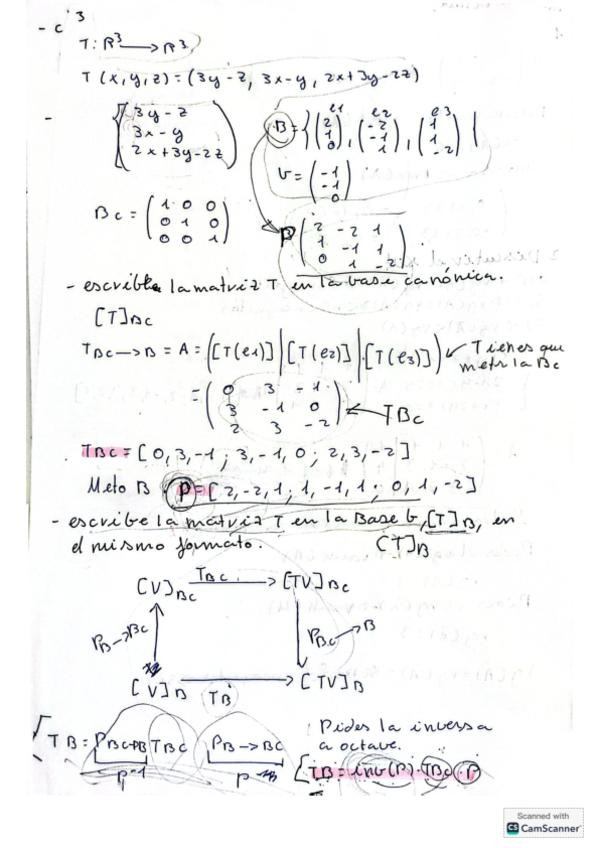 - c 3
T: R³ → R³
T(x,y,z) = (3y-z, 3x-y, 2x+3y-2z)
- { 3y-z
3x-y
2x+3y-2z )
B = { e1 (2 1 0), e2 (-2 -1 1), e3 (1 1 -2) }
v = (-1 -1 0)
Bc = ( 1 0 0
0 1 0
0 0 1 )
P ( 2 -2 1
1 -1 1
0 1 -2 )
- escribe la matriz T en la base canónica.
[T]Bc
TBc→B = A = ([T(e1)] | [T(e2)] | [T(e3)]) Tienes que
metr la Bc
= ( 0 3 -1
3 -1 0
2 3 -2 ) ← TBc
TBc = [0,3,-1; 3,-1,0; 2,3,-2]
Meto B P = [2,-2,1; 1,-1,1; 0,1,-2]
- escribe la matriz T en la Base b, [T]B, en
el mismo formato. [T]B
[V]Bc TBc → [TV]Bc
PB→Bc PBc→B
[V]B TB → [TV]B
TB = PBc→B TBc PB→Bc
P-1 P
Pides la inversa
a octave.
[TB = inv(P)·TBc·P
Scanned with
CS CamScanner